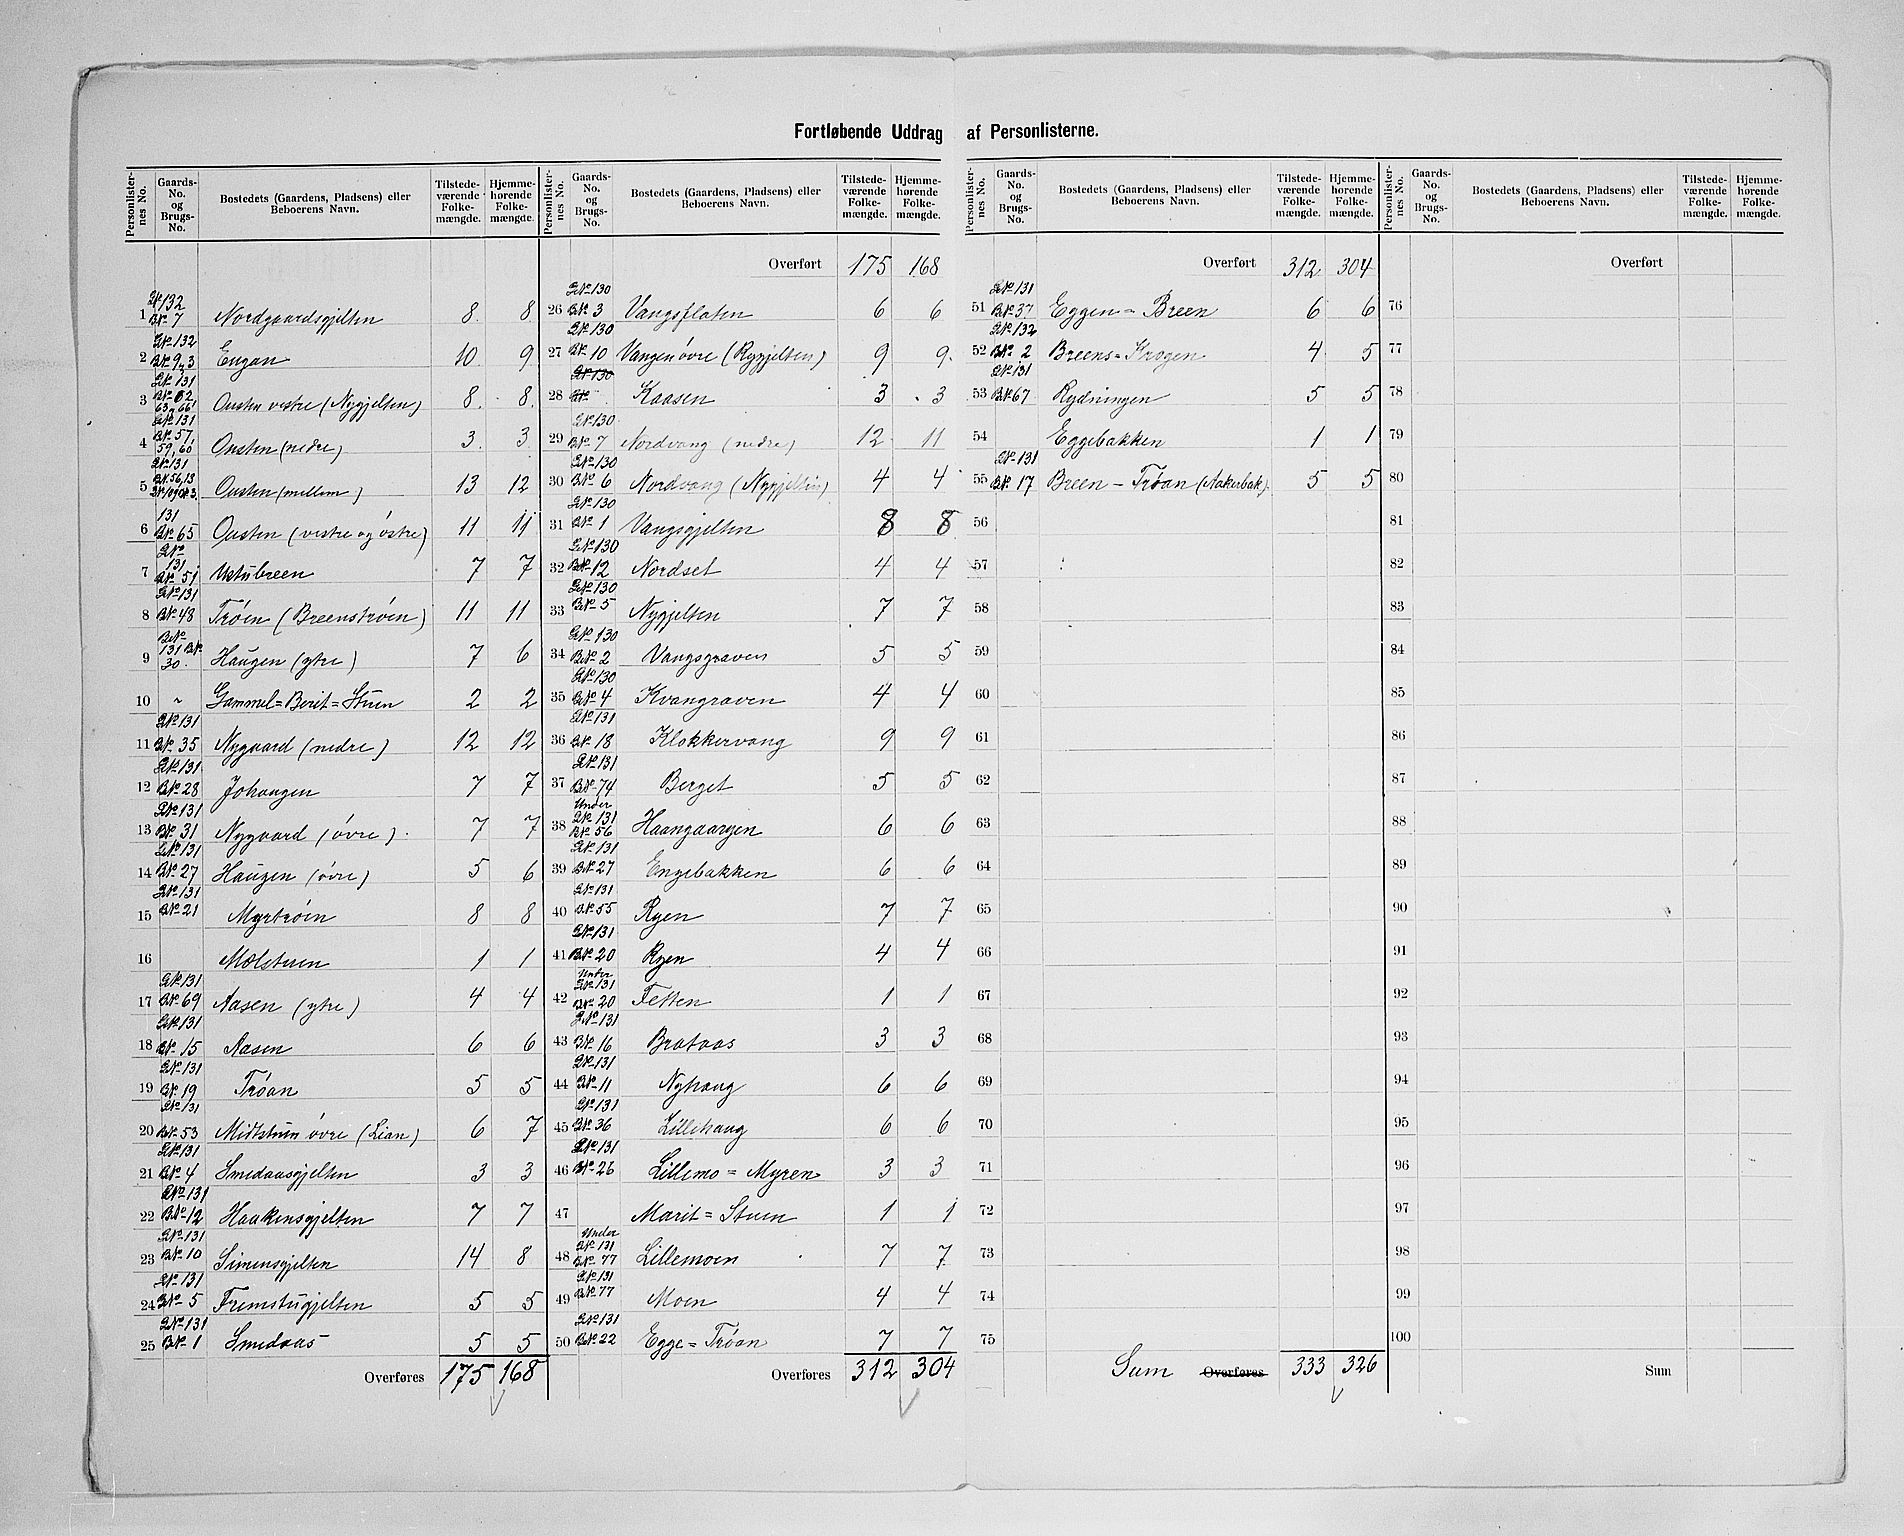 Fortløbende Uddrag af Personlisterne.
Personlisternes No. | Gaards-No. og Brugs-No. | Bostedets (Gaardens, Pladsens) eller Beboerens Navn. | Tilstedeværende Folkemængde. | Hjemmehørende Folkemængde.
1 | G.No 132 B.No 7 | Nordgaardsgjelten | 8 | 8
2 | G.No 132 B.No 9,3 | Engan | 10 | 9
3 | G.No 131 B.No 62 63, 66 | Ousten vestre (Nygjelten) | 8 | 8
4 | G.No 131 B.No 57, 59, 60 | Ousten (nedre) | 3 | 3
5 | G.No 131 B.No 56, 13 | Ousten (mellem) | 13 | 12
6 | 131 B.No 65 | Ousten (vestre og östre) | 11 | 11
7 | G.No 131 B.No 51 | Ustubreen | 7 | 7
8 | G.No 131 B.No 48 | Trøen (Breenstrøen) | 11 | 11
9 | G.No 131 B.No 30. | Haugen (ytre) | 7 | 6
10 | " | Gammel=Berit=Stuen | 2 | 2
11 | G.No 131 B.No 35 | Nygaard (nedre) | 12 | 12
12 | G.No 131 B.No 28 | Johaugen | 7 | 7
13 | G.No 131 B.No 31 | Nygaard (övre). | 7 | 7
14 | G.No 131 B.No 27 | Haugen (övre) | 5 | 6
15 | G.No 131 B.No 21 | Myrtröen | 8 | 8
16 | Mælstuen | 1 | 1
17 | G.No 131 B.No 69 | Aasen (ytre) | 4 | 4
18 | G.No 131 B.No 15 | Aasen | 6 | 6
19 | G.No 131 B.No 19 | Trøan | 5 | 5
20 | G.No 131 B.No 53 | Midtstuen övre (Lian) | 6 | 7
21 | G.No 131 B.No 4 | Smedaasgjelten | 3 | 3
22 | G.No 131 B.No 12 | Haakensgjelten | 7 | 7
23 | G.No 131 B.No 10 | Simensgjelten | 14 | 8
24 | G.No 131 B.No 5 | Fremstugjelten | 5 | 5
25 | G.No 131 B.No 1 | Smedaas | 5 | 5
Overføres 175 168
Personlisternes No. | Gaards-No. og Brugs-No. | Bostedets (Gaardens, Pladsens) eller Beboerens Navn. | Tilstedeværende Folkemængde. | Hjemmehørende Folkemængde.
Overført 175 168
26 | G.No 130 B.No 3 | Vangsflaten | 6 | 6
27 | G.No 130 B.No 10 | Vangen övre (Rygjelten) | 9 | 9.
28 | G.No 130 B.No | Kaasen | 3 | 3
29 | G.No 130 B.No 7 | Nordvang (nedre) | 12 | 11
30 | G.No 130 B.No 6 | Nordvang (Nygjelten) | 4 | 4
31 | G.No 130 B.No 1 | Vangsgjelten | 8 | 8
32 | G.No 130 B.No 12 | Nordset | 4 | 4
33 | G.No 130 B.No 5 | Nygjelten | 7 | 7
34 | G.No 130 B.No 2 | Vangsgraven | 5 | 5
35 | G.No 130 B.No 4 | Kvangraven | 4 | 4
36 | G.No 131 B.No 18 | Klokkervang | 9 | 9
37 | G.No 131 B.No 74 | Berget | 5 | 5
38 | Under G.No 131 B.No 56 | Haangaargen | 6 | 6
39 | G.No 131 B.No 27 | Engebakken | 6 | 6
40 | G.No 131 B.No 55 | Ryen | 7 | 7
41 | G.No 131 B.No 20 | Ryen | 4 | 4
42 | Under G.No 131 B.No 20 | Fetten | 1 | 1
43 | G.No 131 B.No 16 | Brataas | 3 | 3
44 | G.No 131 B.No 11 | Nyhaug | 6 | 6
45 | G.No 131 B.No 36 | Lillehaug | 6 | 6
46 | G.No 131 B.No 26 | Lillemo=Myren | 3 | 3
47 | Marit=Stuen | 1 | 1
48 | Under G.No 131 B.No 77 | Lillemoen | 7 | 7
49 | G.No 131 B.No 77 | Moen | 4 | 4
50 | G.No 131 B.No 22 | Egge=Trøan | 7 | 7
Overføres 312 304
Personlisternes No. | Gaards-No. og Brugs-No. | Bostedets (Gaardens, Pladsens) eller Beboerens Navn. | Tilstedeværende Folkemængde. | Hjemmehørende Folkemængde.
Overført 312 304
51 | G.No 131 B.No 37 | Eggen=Breen | 6 | 6
52 | G.No 132 B.No 2 | Breens=Krogen | 4 | 5
53 | G.No 131 B.No 67 | Rydningen | 5 | 5
54 | Eggebakken | 1 | 1
55 | G.No 131 B.No 17 | Breen-Trøan (Aakerbak). | 5 | 5
56
57
58
59
60
61
62
63
64
65
66
67
68
69
70
71
72
73
74
75
Sum Overføres 333 326
Personlisternes No. | Gaards-No. og Brugs-No. | Bostedets (Gaardens, Pladsens) eller Beboerens Navn. | Tilstedeværende Folkemængde. | Hjemmehørende Folkemængde.
Overført
76
77
78
79
80
81
82
83
84
85
86
87
88
89
90
91
92
93
94
95
96
97
98
99
100
Sum